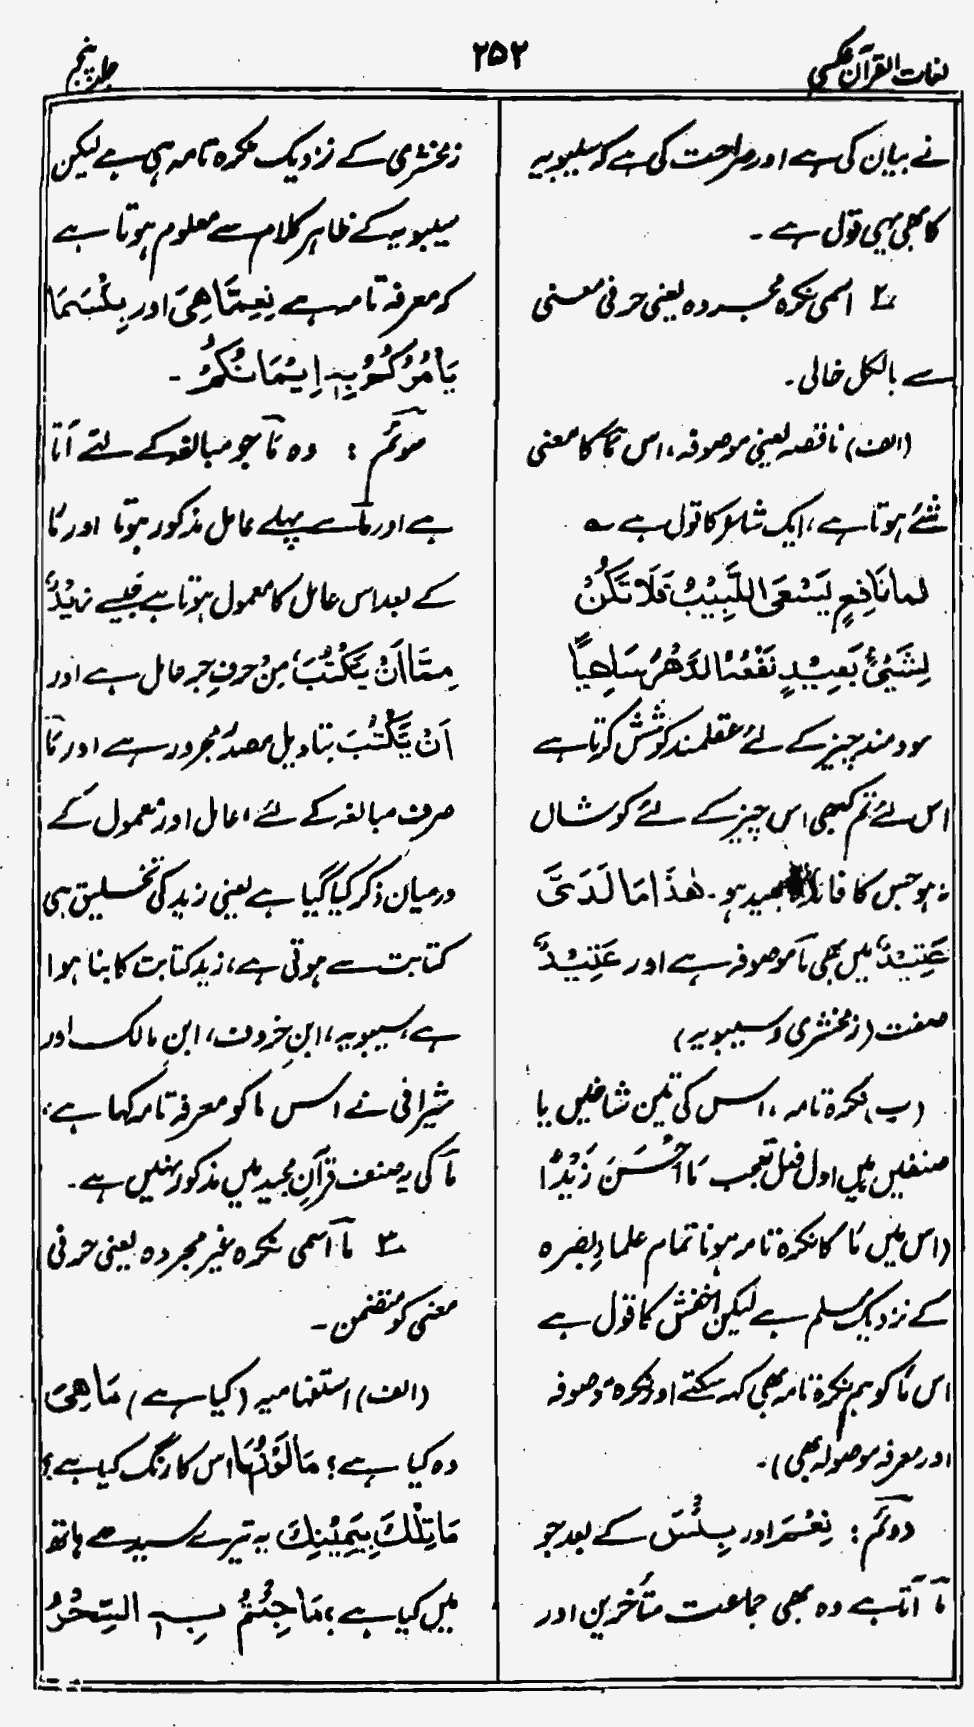 لغات القرآن عکسی
۲۵۲
جلد پنجم
نے بیان کی ہے اور صراحت کی ہے کہ سیبویہ
کا بھی یہی قول ہے ۔
۲ اسمی نکرہ مجردہ یعنی حرفی معنی
سے بالکل خالی ۔
(الف) ناقصہ یعنی موصوفہ، اس مَا کا معنی
شئے ہوتا ہے، ایک شاعر کا قول ہے ؎
لما نَافِعٍ یَسْعَی اللَّبِیْبُ فَلَا تَکُنْ
لِشَیْئٍ بَعِیْدٍ نَفْعُہُ الدَّھْرُ سَاھِیاً
سود مند چیز کے لئے عقلمند کوشش کرتا ہے
اس لئے تم کبھی اس چیز کے لئے کوشاں
نہ ہو جس کا فائدہ بعید ہو ۔ ھٰذَا مَا لَدَیَّ
عَتِیْدٌ میں بھی مَا موصوفہ ہے اور عَتِیْدٌ
صفت (زمخشری و سیبویہ)
(ب) نکرہ تامہ، اس کی تین شاخیں یا
صنفیں ہیں اول فعل تعجب مَا اَحْسَنَ زَیْدًا
(اس میں مَا کا نکرہ تامہ ہونا تمام علماءِ بصرہ
کے نزدیک مسلم ہے لیکن اخفش کا قول ہے
اس مَا کو ہم نکرہ تامہ بھی کہہ سکتے اور نکرہ موصوفہ
اور معرفہ موصولہ بھی) ۔
دوئم : نِعْمَ اور بِئْسَ کے بعد جو
مَا آتا ہے وہ بھی جماعت متأخرین اور
زمخشری کے نزدیک نکرہ تامہ ہی ہے لیکن
سیبویہ کے ظاہر کلام سے معلوم ہوتا ہے
کہ معرفہ تامہ ہے نِعِمَّا ھِیَ اور بِئْسَمَا
یَأْمُرُکُمْ بِہٖ اِیْمَانُکُمْ ۔
سوئم : وہ مَا جو مبالغہ کے لئے آتا
ہے اور مَا سے پہلے عامل مذکور ہوتا اور مَا
کے بعد اس عامل کا معمول ہوتا ہے جیسے زَیْدٌ
مِمَّا اَنْ یَکْتُبَ، مِنْ حرفِ جر عامل ہے اور
اَنْ یَکْتُبَ بتاویل مصدر مجرور ہے اور مَا
صرف مبالغہ کے لئے، عامل اور معمول کے
درمیان ذکر کیا گیا ہے یعنی زید کی تخلیق ہی
کتابت سے ہوتی ہے، زید کتابت کا بنا ہوا
ہے، سیبویہ، ابنِ خروف، ابنِ مالک اور
سیرافی نے اس مَا کو معرفہ تامہ کہا ہے،
مَا کی یہ صنف قرآنِ مجید میں مذکور نہیں ہے ۔
۳ مَا اسمی نکرہ غیر مجردہ یعنی حرفی
معنی کو متضمن ۔
(الف) استفہامیہ (کیا ہے) مَا ھِیَ
وہ کیا ہے؟ مَا لَوْنُھَا اس کا رنگ کیا ہے؟
مَا تِلْکَ بِیَمِیْنِکَ یہ تیرے سیدھے ہاتھ
میں کیا ہے، مَا جِئْتُمْ بِہِ السِّحْرُ